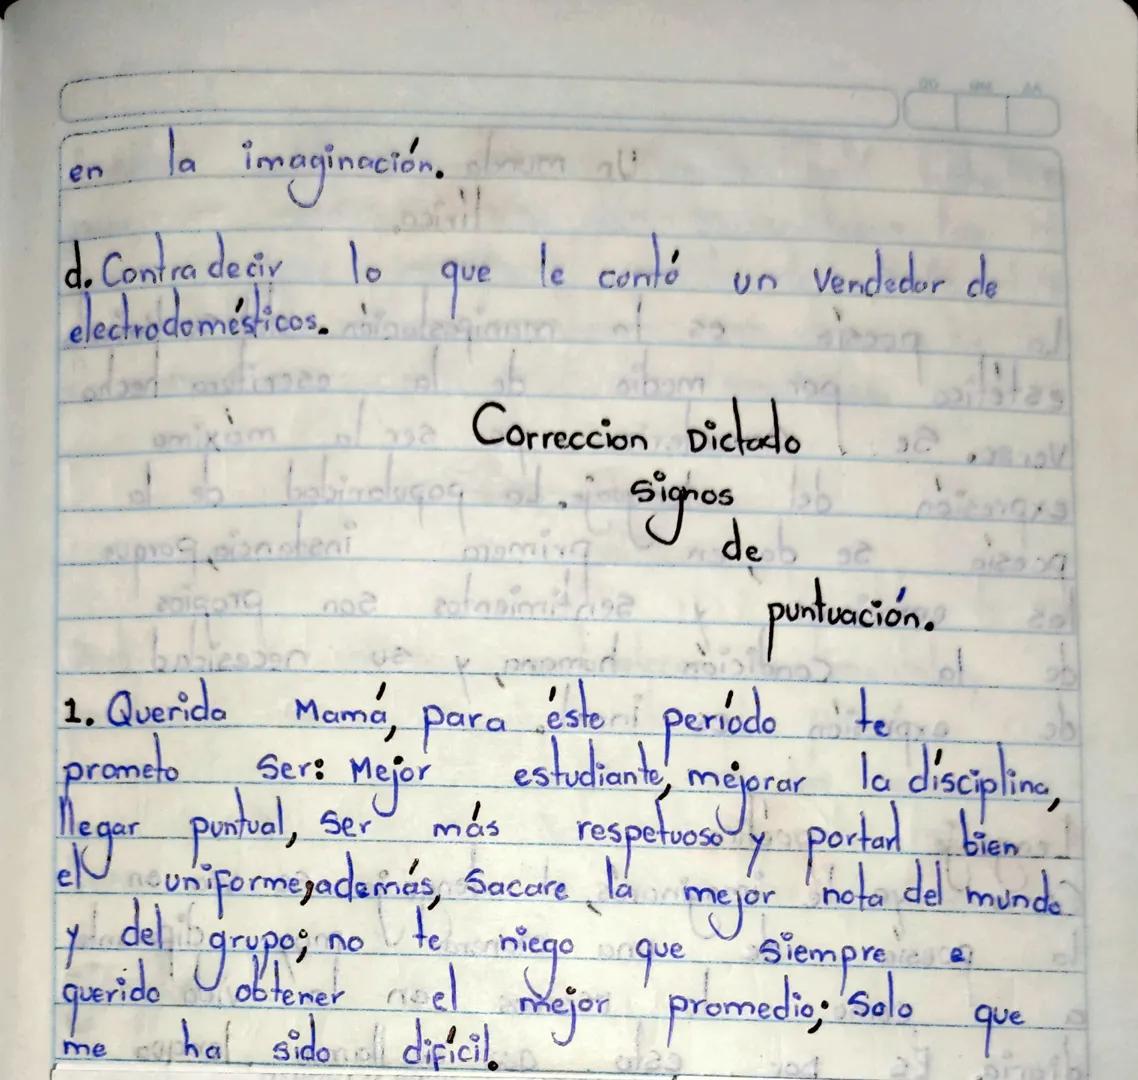 en la imaginación.
d. Contradecir lo que le contó un Vendedor de
electrodomésticos.
Correccion Dictado
signos
de
puntuación.
1. Querida Mamá, para éste período te
prometo Ser: Mejor estudiante, mejorar la disciplina,
llegar puntual, Ser más respetuoso y portar bien
el uniforme; además, Sacare la mejor nota del mundo
y del grupo; no te niego que Siempre e
querido obtener el mejor promedio; Solo que
me ha sido dificil.